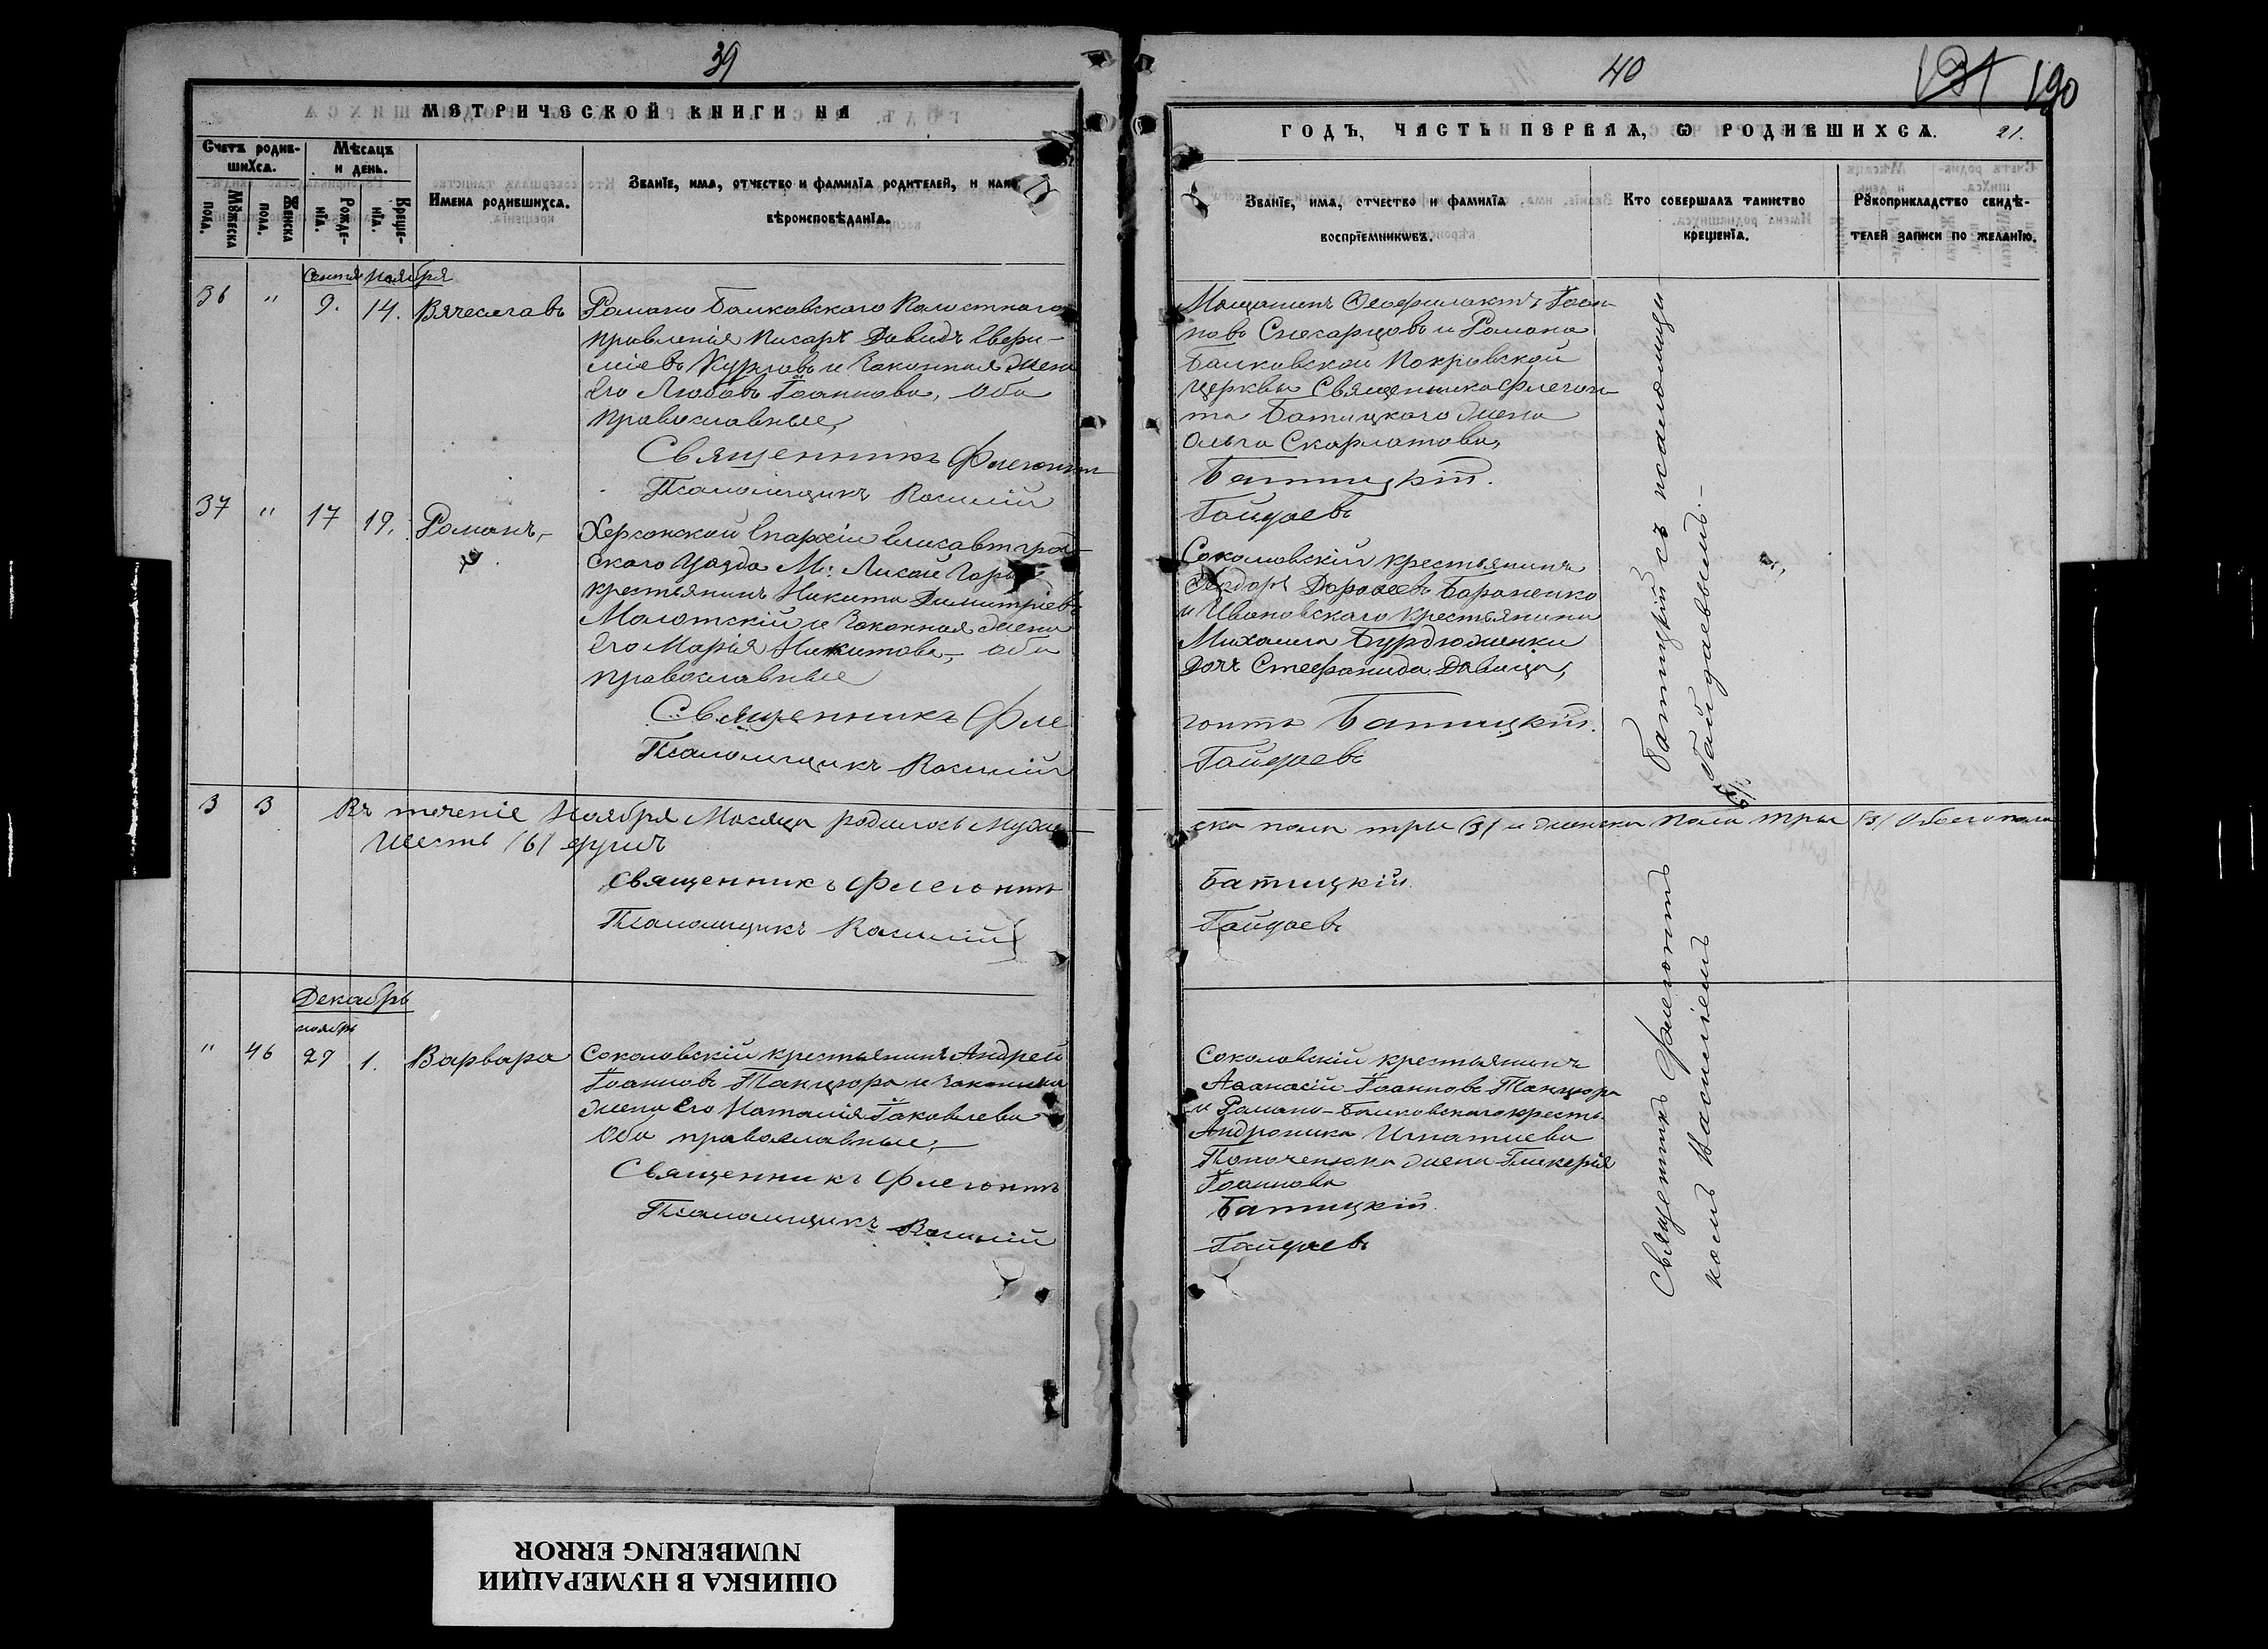 39
МЕТРИЧЕСКОЙ КНИГИ НА
Счетъ родив-
шихсѧ.
Мѣсѧцъ
и день.
Мꙋжеска
пола.
Женска
пола.
Рожде-
нїѧ.
Креще-
нїѧ.
Имена родившихсѧ.
Званїе, имѧ, отчество и фамилїѧ родителей, и како
вѣроисповѣданїѧ.
Ноября
36 " 9. 14. Вячеславъ
Романо Балковскаго Волостнаго
правленія Писарь Давидъ
и законная жена
Его Любовь Іоаннова, Оба
православные,
Священникъ Флегонтъ
Псаломщикъ Василій
37 " 17 19. Романъ,-
Херсонской Епархіи Елисаветград-
скаго Уѣзда М: Лисой Горы
крестьянинъ Никита Димитріевъ
и законная жена
Его Марія Никитова, оба
православные
Священникъ Фле
Псаломщикъ Василій
3 3 Въ теченіе Ноября Мѣсяца родилось муже-
Шесть /6/ душъ
Священникъ Флегонтъ
Псаломщикъ Василій
Декабрь
ноябрь
" 46 27 1. Варвара
Соколовскій крестьянинъ Андрей
Іоанновъ Танцюра и законная
жена Его Наталія Іаковлева
Оба православные,
Священникъ Флегонтъ
Псаломщикъ Василій
40
190
ГОДЪ, ЧАСТЬ ПЕРВАѦ, Ѡ РОДИВШИХСѦ. 21.
Званїе, имѧ, отчество и фамилїѧ
воспрїемникѡвъ.
Кто совершалъ таинство
крещенїѧ.
Рꙋкоприкладство свидѣ-
телей записи по желанїю.
Мѣщанинъ Ѳеофилактъ Іоан-
новъ и Романо
Балковской Покровской
церквы Священника Флегон-
та Батицкаго жена
Ольга Скарлатова,
Батицкій.
Гайдаевъ
Соколовскій крестьянинъ
Ѳеодоръ Дороѳеевъ Бараненко
и Ивановскаго крестьянина
Михаила
дочь Стефанида Дѣвица,
гонтъ Батицкій.
Гайдаевъ
ска пола три /3/ и женска пола три /3/ Обоего пола
Батицкій
Гайдаевъ
Соколовскій крестьянинъ
Аѳанасій Іоанновъ Танцюра
и Романо-Балковскаго кресть.
Андроника Игнатиева
жена Гликерія
Іоаннова
Батицкій.
Гайдаевъ
Священникъ Флегонтъ Батицкій съ псаломщи
комъ Василіемъ Гайдаевымъ.-
ОШИБКА В НУМЕРАЦИИ
NUMBERING ERROR